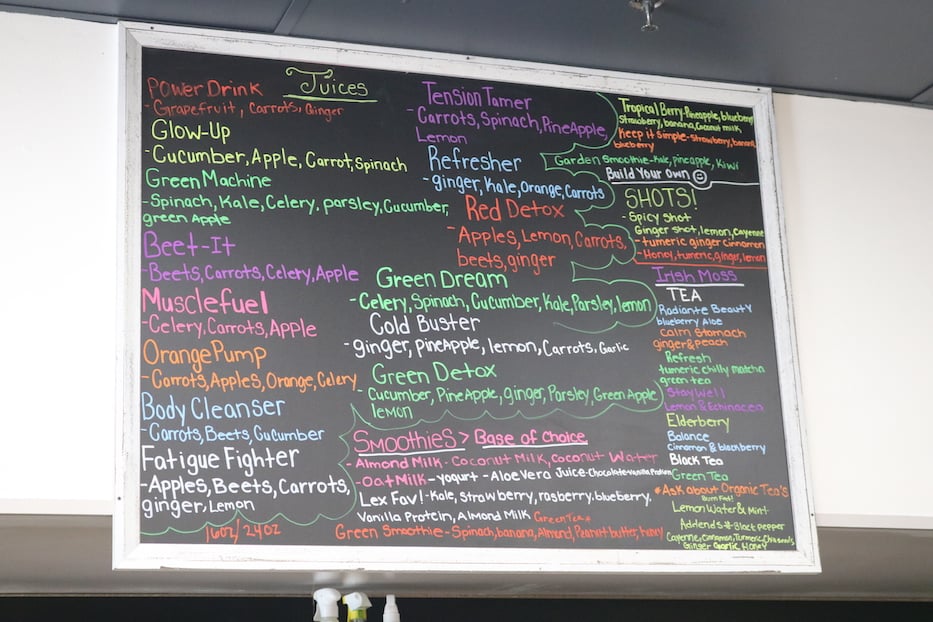 Juices
Power Drink
- Grapefruit, Carrots, Ginger
Glow-Up
- Cucumber, Apple, Carrot, Spinach
Green Machine
- Spinach, Kale, Celery, parsley, Cucumber,
green Apple
Beet-It
- Beets, Carrots, Celery, Apple
Musclefuel
- Celery, Carrots, Apple
Orange Pump
- Carrots, Apples, Orange, Celery
Body Cleanser
- Carrots, Beets, Cucumber
Fatigue Fighter
- Apples, Beets, Carrots,
ginger, Lemon
16oz/24oz
Tension Tamer
- Carrots, Spinach, PineApple,
Lemon
Refresher
- ginger, Kale, Orange, Carrots
Red Detox
- Apples, Lemon, Carrots,
beets, ginger
Green Dream
- Celery, Spinach, Cucumber, Kale, Parsley, lemon
Cold Buster
- ginger, PineApple, lemon, Carrots, Garlic
Green Detox
- Cucumber, PineApple, ginger, Parsley, Green Apple
lemon
Smoothies > Base of Choice
- Almond Milk - Coconut Milk, Coconut Water
- Oat Milk - Yogurt - Aloe Vera Juice - Chocolate - Vanilla Protein
Lex Fav! - Kale, strawberry, rasberry, blueberry,
Vanilla Protein, Almond Milk Green Tea
Green Smoothie - Spinach, banana, Almond, Peanut butter, honey
Tropical Berry - Pineapple, blueberry
strawberry, banana, Coconut milk
Keep it simple - strawberry, banana,
blueberry
Garden Smoothie - Kale, pineapple, Kiwi
Build Your Own
SHOTS!
- Spicy Shot
Ginger shot, lemon, Cayenne
- tumeric ginger cinnamon
- Honey, tumeric, ginger, lemon
Irish Moss
TEA
Radiante Beauty
blueberry Aloe
Calm Stomach
ginger & peach
Refresh
tumeric chilly matcha
green tea
Stay Well
Lemon & Echinacea
Elderberry
Balance
Cinnamon & blackberry
Black Tea
Green Tea
*Ask about Organic Tea's
Burn Fat!
Lemon Water & Mint
Addends # Black pepper
Cayenne, Cinnamon, Tumeric,
Ginger Garlic, Honey